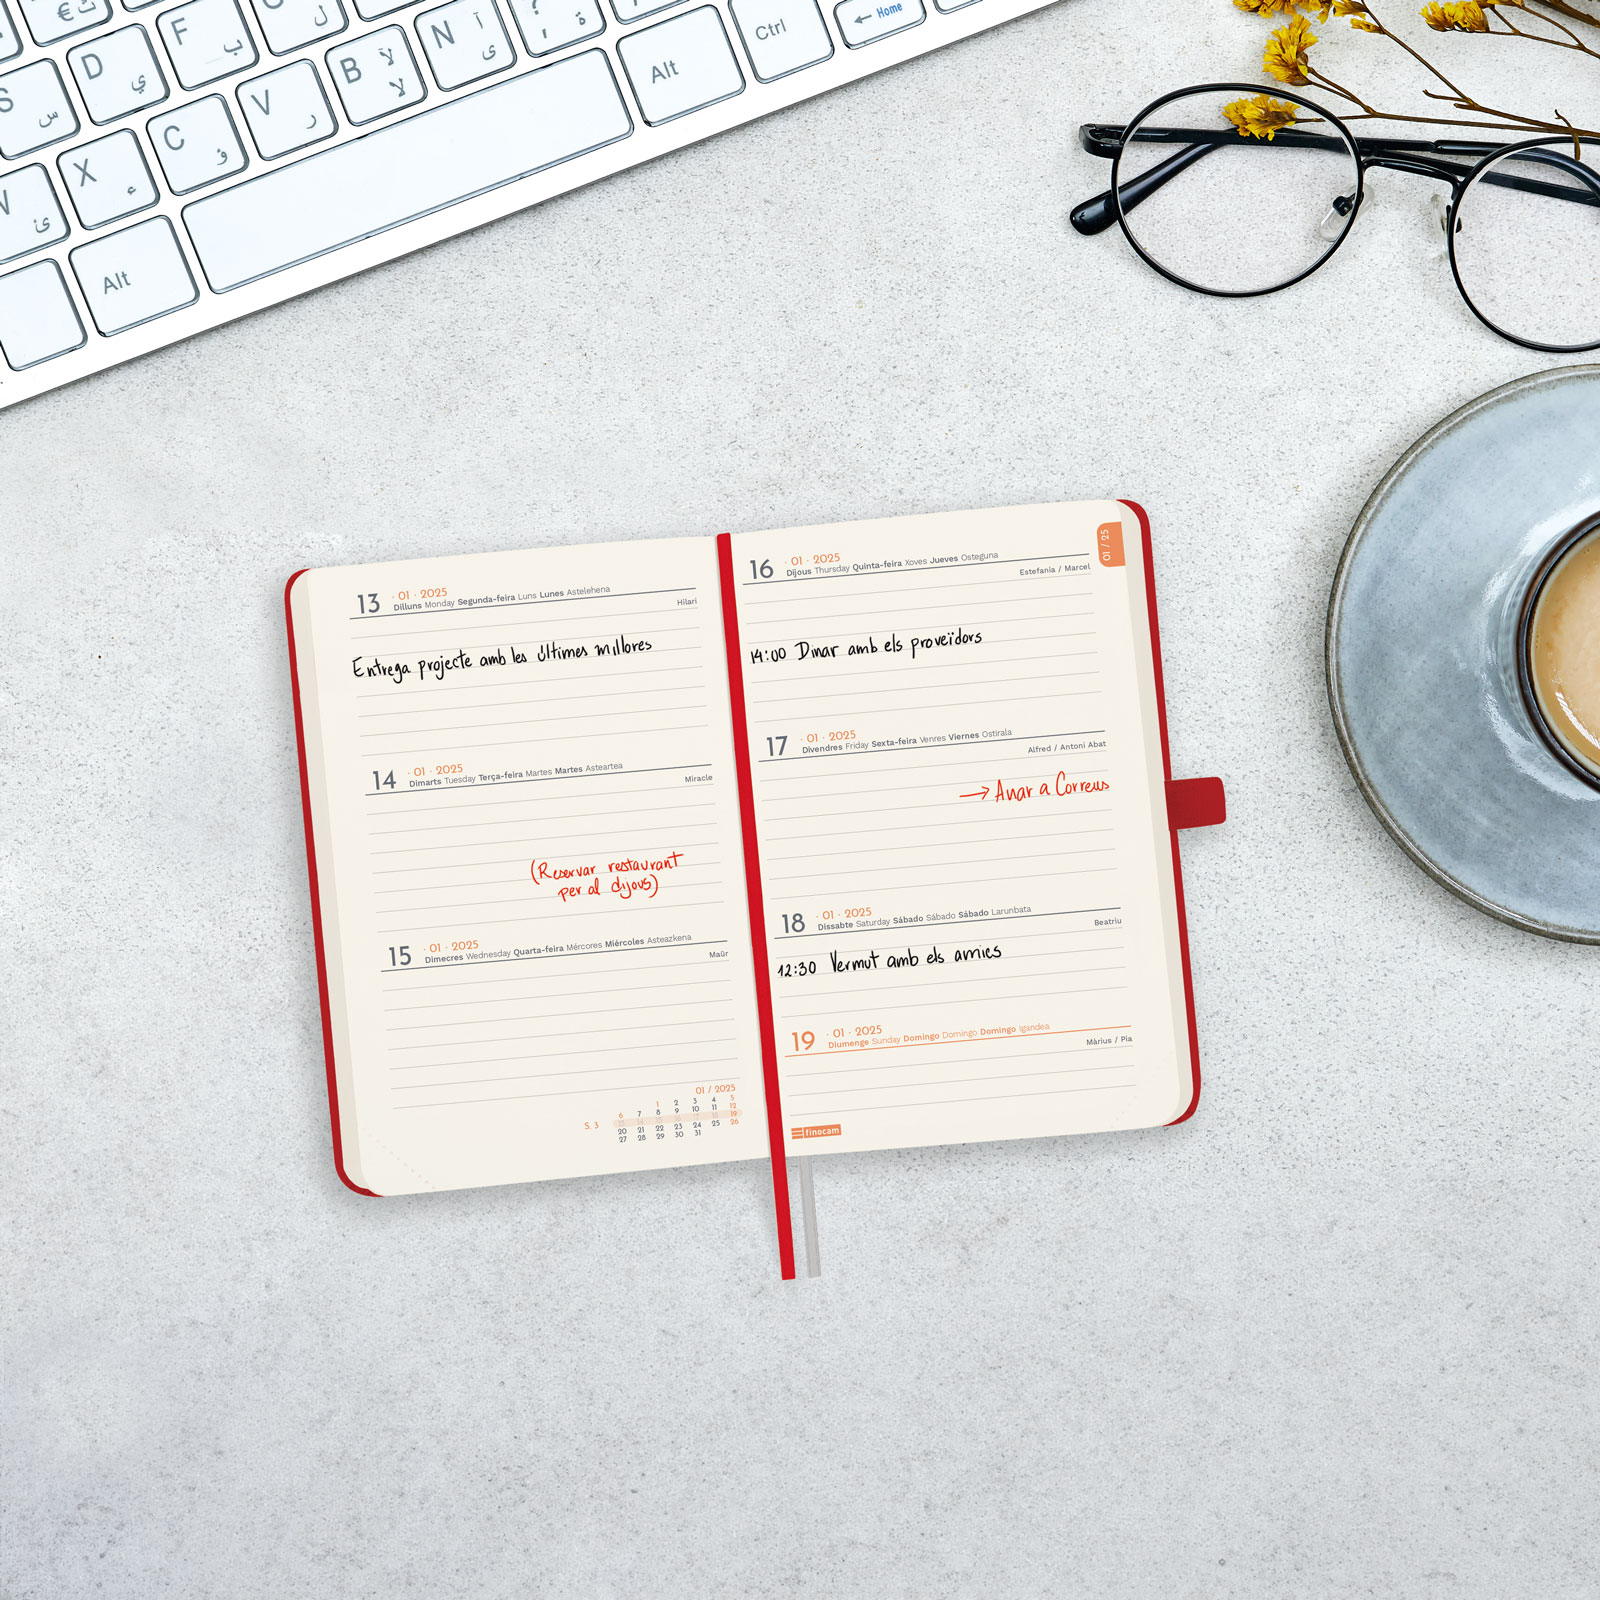 € ث
F ب
ل
D ي
S س
B لآ لا
N آ ى
؟ ة
V ر
C ؤ
X ء
ئ
Alt
Alt
Ctrl
← Home
13 · 01 · 2025
Dilluns Monday Segunda-feira Luns Lunes Astelehena
Hilari
Entrega projecte amb les últimes millores
14 · 01 · 2025
Dimarts Tuesday Terça-feira Martes Martes Asteartea
Miracle
(Reservar restaurant
per al dijous)
15 · 01 · 2025
Dimecres Wednesday Quarta-feira Mércores Miércoles Asteazkena
Maür
01 / 2025
1 2 3 4 5
6 7 8 9 10 11 12
S. 3 13 14 15 16 17 18 19
20 21 22 23 24 25 26
27 28 29 30 31
01 / 25
16 · 01 · 2025
Dijous Thursday Quinta-feira Xoves Jueves Osteguna
Estefania / Marcel
14:00 Dinar amb els proveïdors
17 · 01 · 2025
Divendres Friday Sexta-feira Venres Viernes Ostirala
Alfred / Antoni Abat
→ Anar a Correus
18 · 01 · 2025
Dissabte Saturday Sábado Sábado Sábado Larunbata
Beatriu
12:30 Vermut amb els amics
19 · 01 · 2025
Diumenge Sunday Domingo Domingo Domingo Igandea
Màrius / Pia
finocam